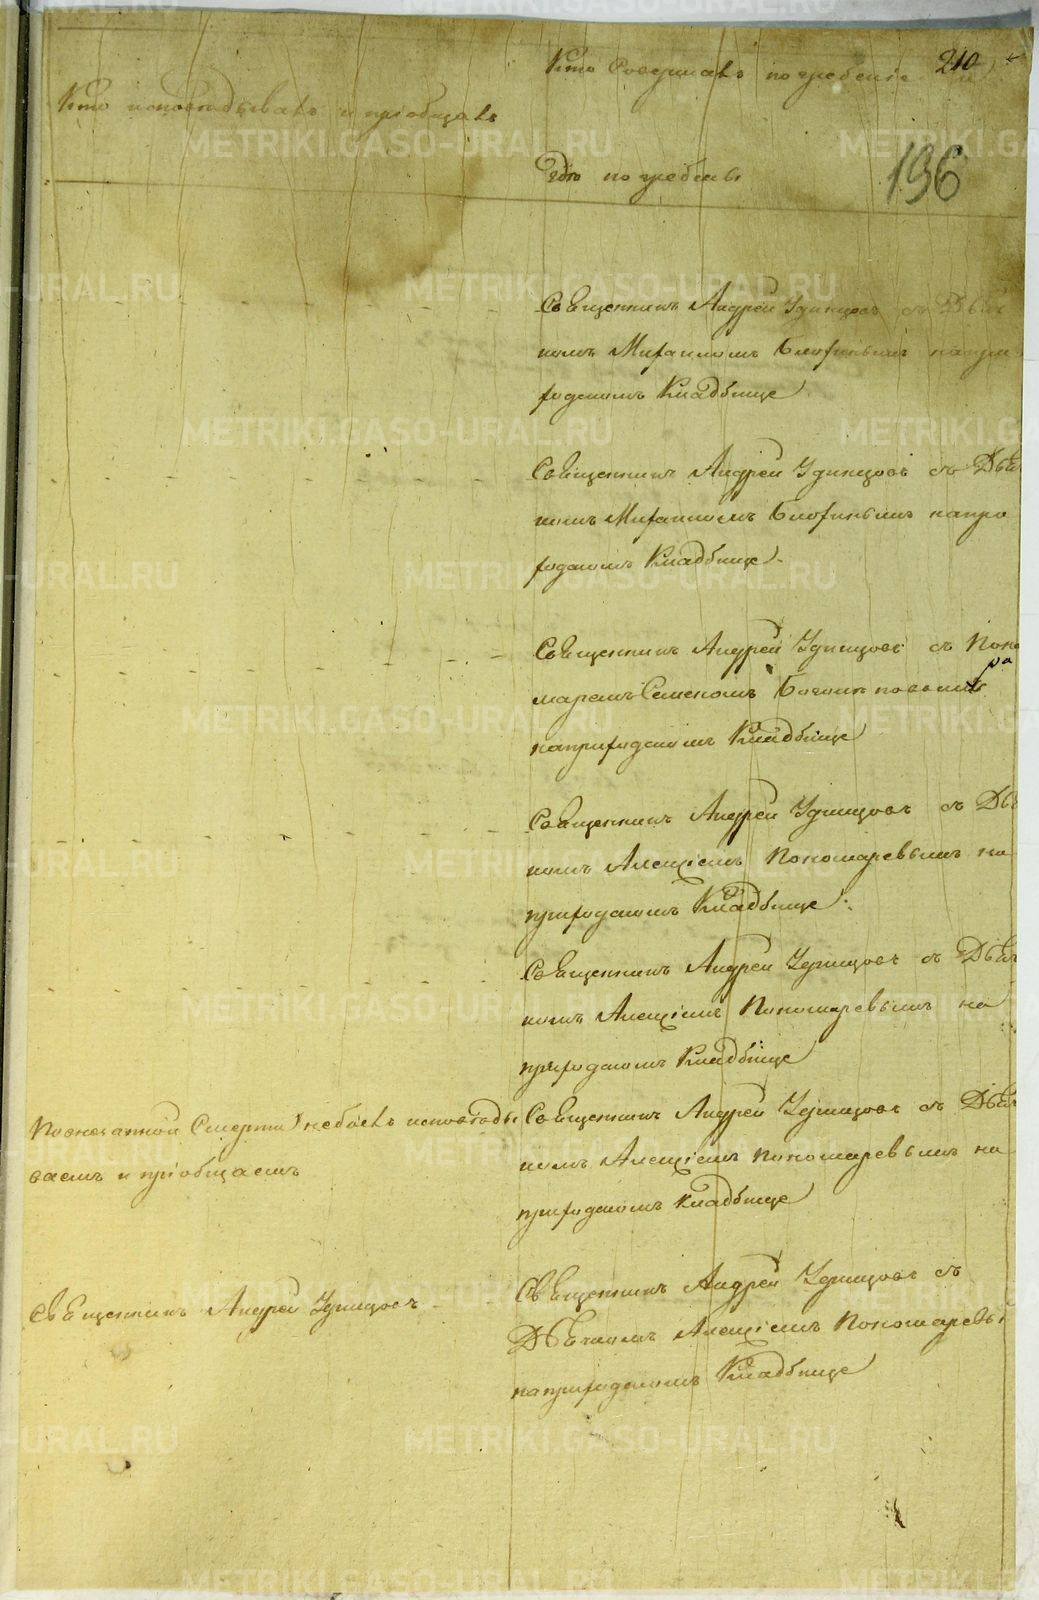 210
Кто исповѣдывалъ и пріобщалъ
Кто Совершалъ погребеніе и
гдѣ погребены
196
Священникъ Андрей Удинцовъ съ Дьяч
комъ Михаиломъ напри
ходскомъ Кладбище
Священникъ Андрей Удинцовъ съ Дьяч
комъ Михаиломъ напри
ходскомъ Кладбище
Священникъ Андрей Удинцовъ съ Поно
маремъ Семеномъ
наприходскомъ Кладбище
Священникъ Андрей Удинцовъ съ Дья
комъ Алексіемъ Пономаревымъ на
приходскомъ Кладбище
Священникъ Андрей Удинцовъ съ Дьяч
комъ Алексіемъ Пономаревымъ на
приходскомъ Кладбище
Понечаянной Смерти небылъ исповѣды
ваемъ и пріобщаемъ
Священникъ Андрей Удинцовъ съ Дьяч
комъ Алексіемъ Пономаревымъ на
приходскомъ Кладбище
Священникъ Андрей Удинцовъ
Священникъ Андрей Удинцовъ съ
Дьячкомъ Алексіемъ Пономаревы
наприходскомъ Кладбище
METRIKI.GASO-URAL.RU